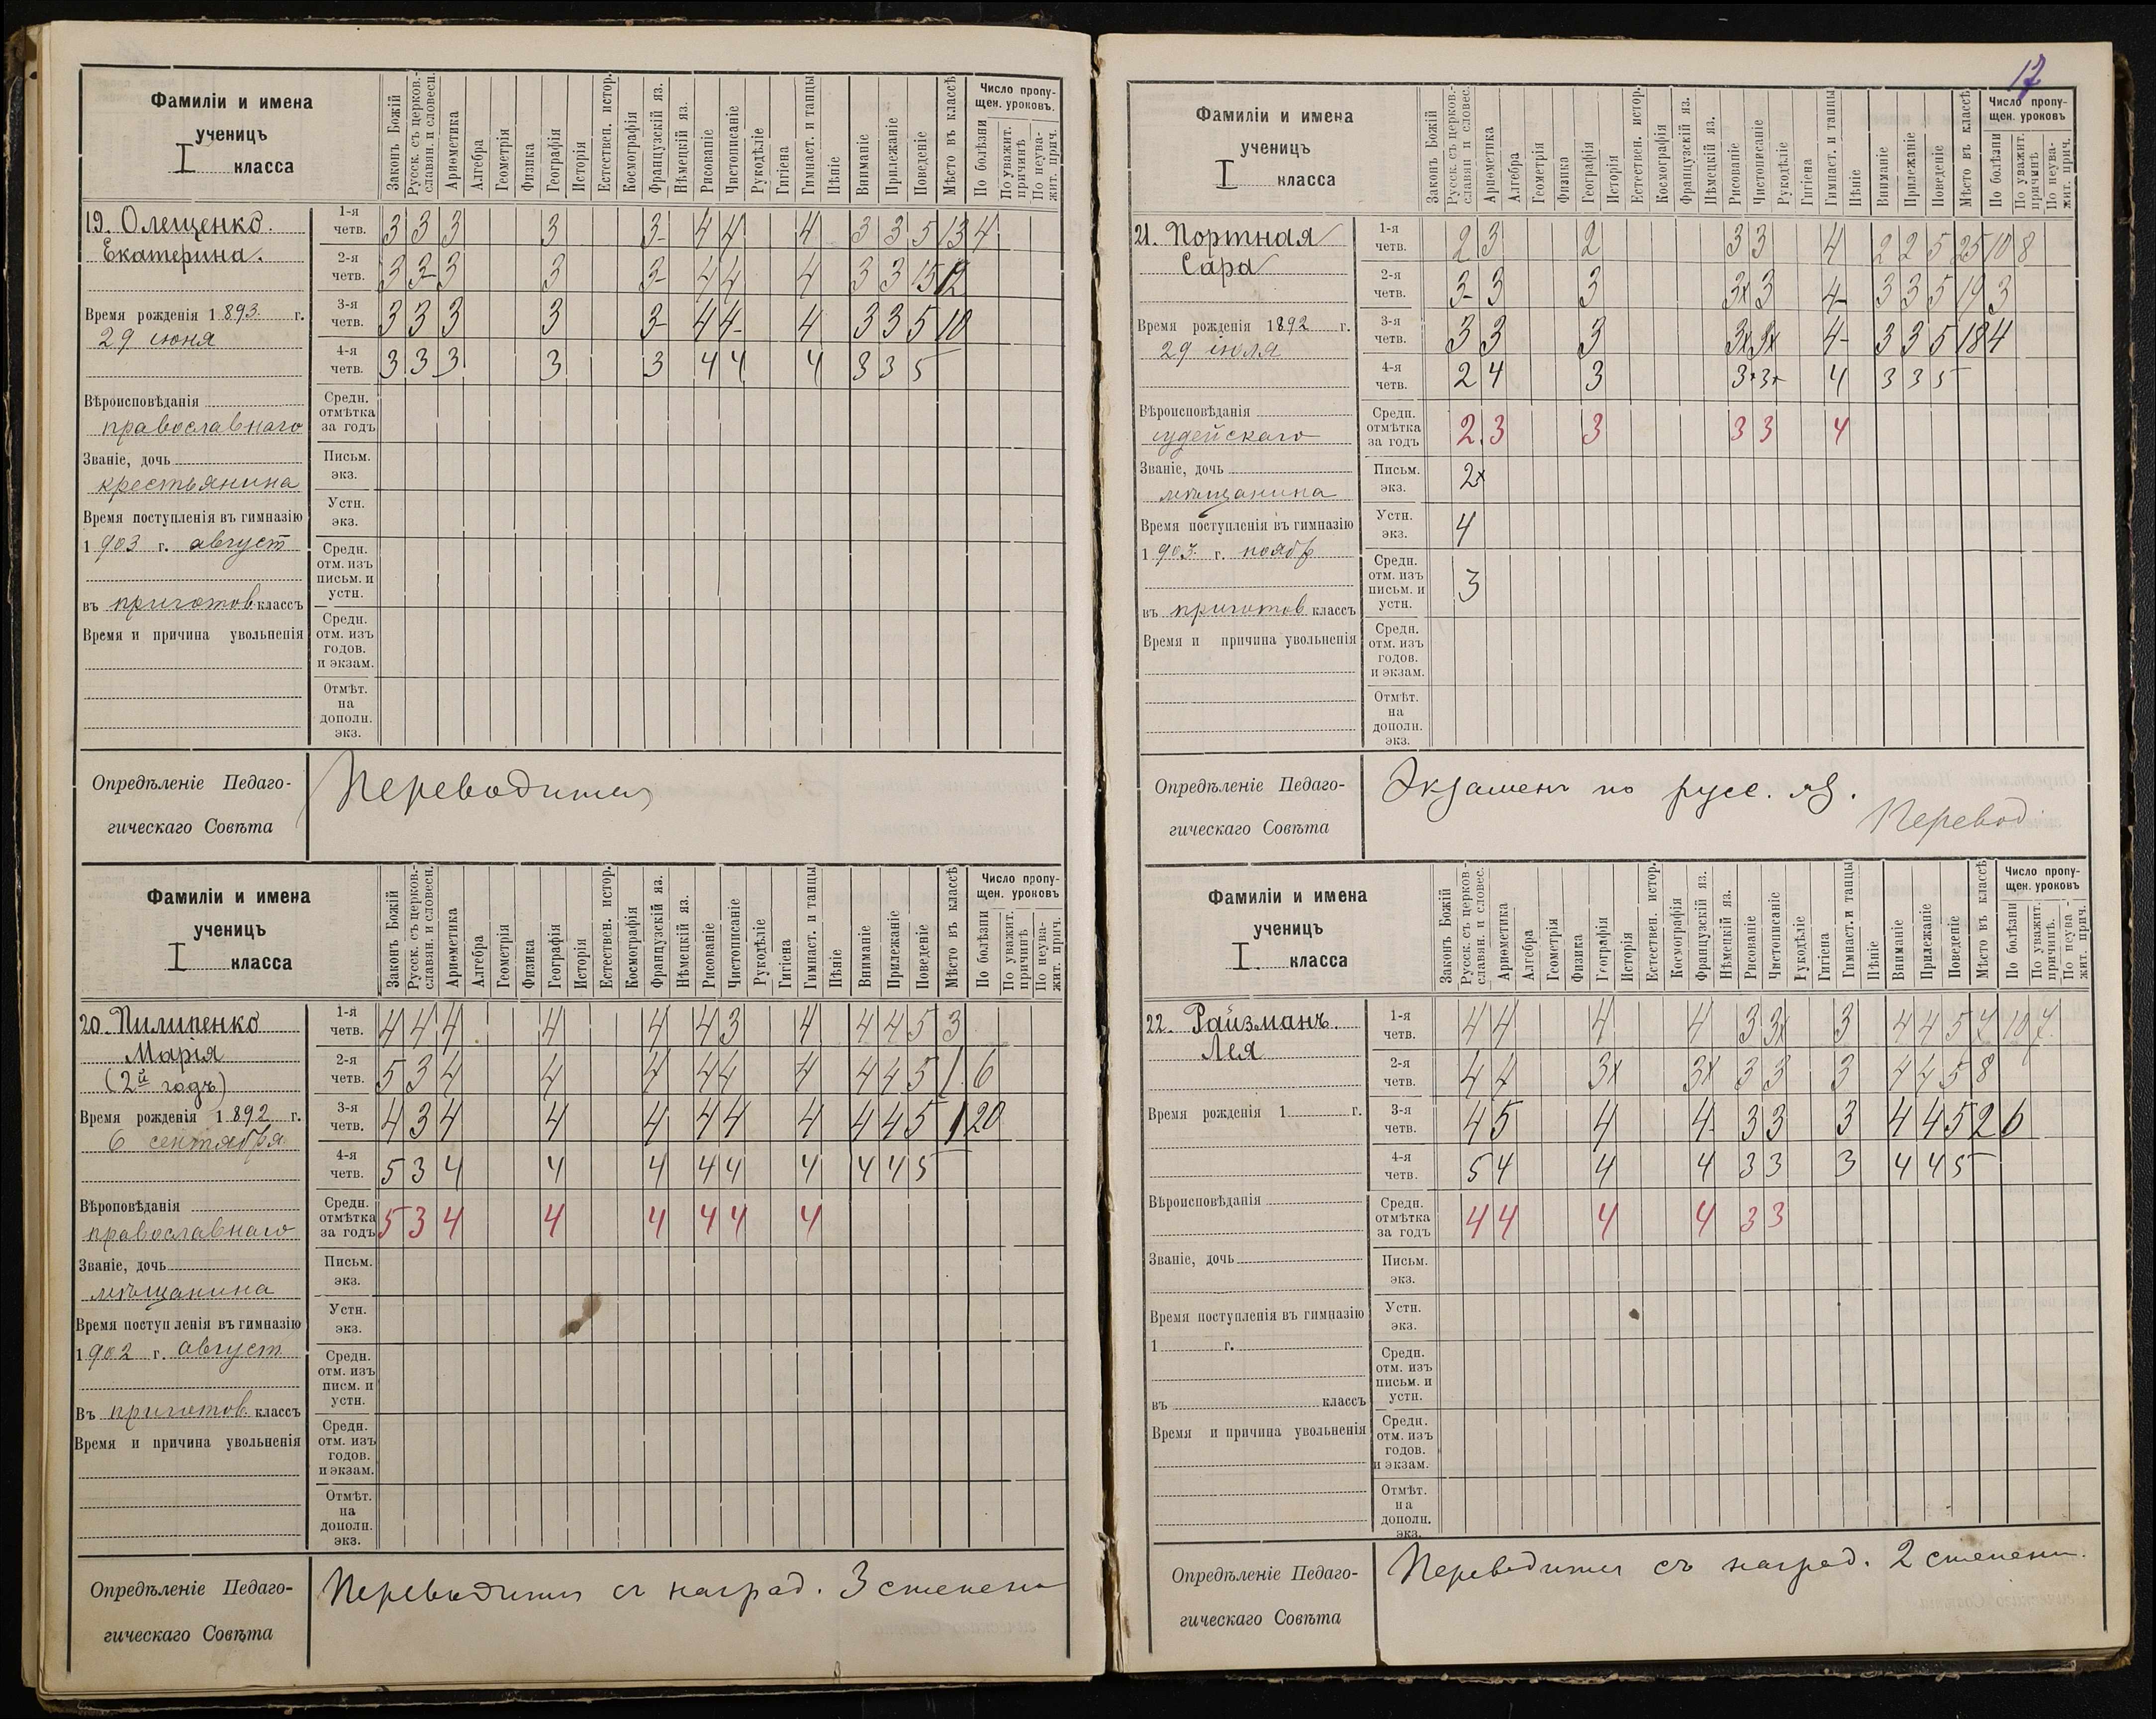 17
Фамиліи и имена
ученицъ
I класса
Законъ Божій
Русск. съ церков.-
славян. и словесн.
Ариѳметика
Алгебра
Геометрія
Физика
Географія
Исторія
Естествен. истор.
Космографія
Французскій яз.
Нѣмецкій яз.
Рисованіе
Чистописаніе
Рукодѣліе
Гигіена
Гимнаст. и танцы
Пѣніе
Вниманіе
Прилежаніе
Поведеніе
Мѣсто въ классѣ
Число пропу-
щен. уроковъ.
По болѣзни
По уважит.
причинѣ
По неува-
жит. прич.
19. Олещенко.
Екатерина.
Время рожденія 1893 г.
29 июня
Вѣроисповѣданія
православнаго
Званіе, дочь
крестьянина
Время поступленія въ гимназію
1903 г. август
въ приготов. классъ
Время и причина увольненія
1-я четв. 3 3 3 3 3- 4 4 4 3 3 5 13 4
2-я четв. 3 3- 3 3 3- 4 4 4 3 3 5 12
3-я четв. 3 3 3 3 3- 4 4- 4 3 3 5 10
4-я четв. 3 3 3 3 3 4 4 4 3 3 5
Средн.
отмѣтка
за годъ
Письм.
экз.
Устн.
экз.
Средн.
отм. изъ
письм. и
устн.
Средн.
отм. изъ
годов.
и экзам.
Отмѣт.
на
дополн.
экз.
Опредѣленіе Педаго-
гическаго Совѣта
Переводится
Фамиліи и имена
ученицъ
I класса
Законъ Божій
Русск. съ церков.-
славян. и словесн.
Ариѳметика
Алгебра
Геометрія
Физика
Географія
Исторія
Естествен. истор.
Космографія
Французскій яз.
Нѣмецкій яз.
Рисованіе
Чистописаніе
Рукодѣліе
Гигіена
Гимнаст. и танцы
Пѣніе
Вниманіе
Прилежаніе
Поведеніе
Мѣсто въ классѣ
Число пропу-
щен. уроковъ
По болѣзни
По уважит.
причинѣ
По неува-
жит. прич.
20. Пилипенко
Марія
(2й годъ)
Время рожденія 1892 г.
6 сентября
Вѣроповѣданія
православнаго
Званіе, дочь
мѣщанина
Время поступленія въ гимназію
1902 г. август
Въ приготов. классъ
Время и причина увольненія
1-я четв. 4 4 4 4 4 4 3 4 4 4 5 3
2-я четв. 5 3 4 4 4 4 4 4 4 4 5 1 6
3-я четв. 4 3 4 4 4 4 4 4 4 4 5 1 20
4-я четв. 5 3 4 4 4 4 4 4 4 4 5
Средн.
отмѣтка
за годъ 5 3 4 4 4 4 4 4
Письм.
экз.
Устн.
экз.
Средн.
отм. изъ
писм. и
устн.
Средн.
отм. изъ
годов.
и экзам.
Отмѣт.
на
дополн.
экз.
Опредѣленіе Педаго-
гическаго Совѣта
Переводится съ наград. 3 степени
Фамиліи и имена
ученицъ
I класса
Законъ Божій
Русск. съ церков.-
славян и словес.
Ариѳметика
Алгебра
Геометрія
Физика
Географія
Исторія
Естествен. истор.
Космографія
Французскій яз.
Нѣмецкій яз.
Рисованіе
Чистописаніе
Рукодѣліе
Гигіена
Гимнаст. и танцы
Пѣніе
Вниманіе
Прилежаніе
Поведеніе
Мѣсто въ классѣ
Число пропу-
щен. уроковъ
По болѣзни
По уважит.
причинѣ
По неува-
жит. прич.
21. Портная
Сара
Время рожденія 1892 г.
29 іюля
Вѣроисповѣданія
іудейскаго
Званіе, дочь
мѣщанина
Время поступленія въ гимназію
1903 г. ноябр
въ приготов классъ
Время и причина увольненія
1-я четв. 2 3 2 3 3 4 2 2 5 25 10 8
2-я четв. 3- 3 3 3x 3 4- 3 3 5 19 3
3-я четв. 3 3 3 3x 3x 4- 3 3 5 18 4
4-я четв. 2 4 3 3x 3x 4 3 3 5
Средн.
отмѣтка
за годъ 2. 3 3 3 3 4
Письм.
экз. 2x
Устн.
экз. 4
Средн.
отм. изъ
письм. и
устн. 3
Средн.
отм. изъ
годов.
и экзам.
Отмѣт.
на
дополн.
экз.
Опредѣленіе Педаго-
гическаго Совѣта
Экзаменъ по русс. яз.
Перевод
Фамиліи и имена
ученицъ
I. класса
Законъ Божій
Русск. съ церков-
славян. и словес.
Ариѳметика
Алгебра
Геометрія
Физика
Географія
Исторія
Естествен. истор.
Космографія
Французскій яз.
Нѣмецкій яз.
Рисованіе
Чистописаніе
Рукодѣліе
Гигіена
Гимнаст. и танцы
Пѣніе
Вниманіе
Прилежаніе
Поведеніе
Мѣсто въ классѣ
Число пропу-
щен. уроковъ
По болѣзни
По уважит.
причинѣ.
По неува-
жит. прич.
22. Райзманъ.
Лея
Время рожденія 1 г.
Вѣроисповѣданія
Званіе, дочь
Время поступленія въ гимназію
1 г.
въ классъ
Время и причина увольненія
1-я четв. 4 4 4 4 3 3x 3 4 4 5 4 10 4
2-я четв. 4 4 3x 3x 3 3 3 4 4 5 8
3-я четв. 4 5 4 4- 3 3 3 4 4 5 2 6
4-я четв. 5 4 4 4 3 3 3 4 4 5
Средн.
отмѣтка
за годъ 4 4 4 4 3 3
Письм.
экз.
Устн.
экз.
Средн.
отм. изъ
письм. и
устн.
Средн.
отм. изъ
годов.
и экзам.
Отмѣт.
на
дополн.
экз.
Опредѣленіе Педаго-
гическаго Совѣта
Переводится съ наград. 2 степени.